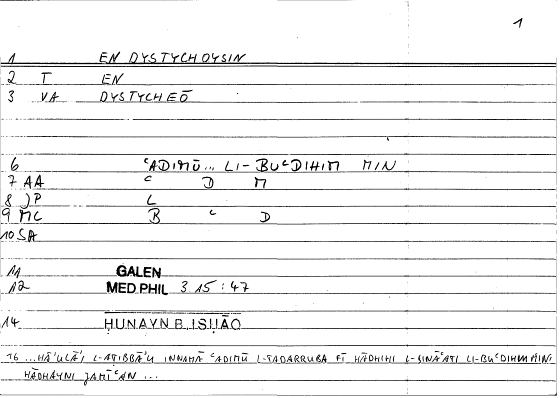 1
1 EN DYSTYCHOYSIN
2 T EN
3 VA DYSTYCHEŌ
6 ᶜADIMŪ... LI-BUᶜDIHIM MIN
7 AA ᶜ D M
8 JP L
9 MC B ᶜ D
10 SA
11 GALEN
12 MED.PHIL 3 15:47
14 ḤUNAYN B. ISḤĀQ
16 ...HĀʾULĀʾI L-AṬIBBĀʾU INNAMĀ ᶜADIMŪ L-TADARRUBA FĪ HĀDHIHI L-ṢINĀᶜATI LI-BUᶜDIHIM MIN
HĀDHAYNI JAMĪᶜAN ...